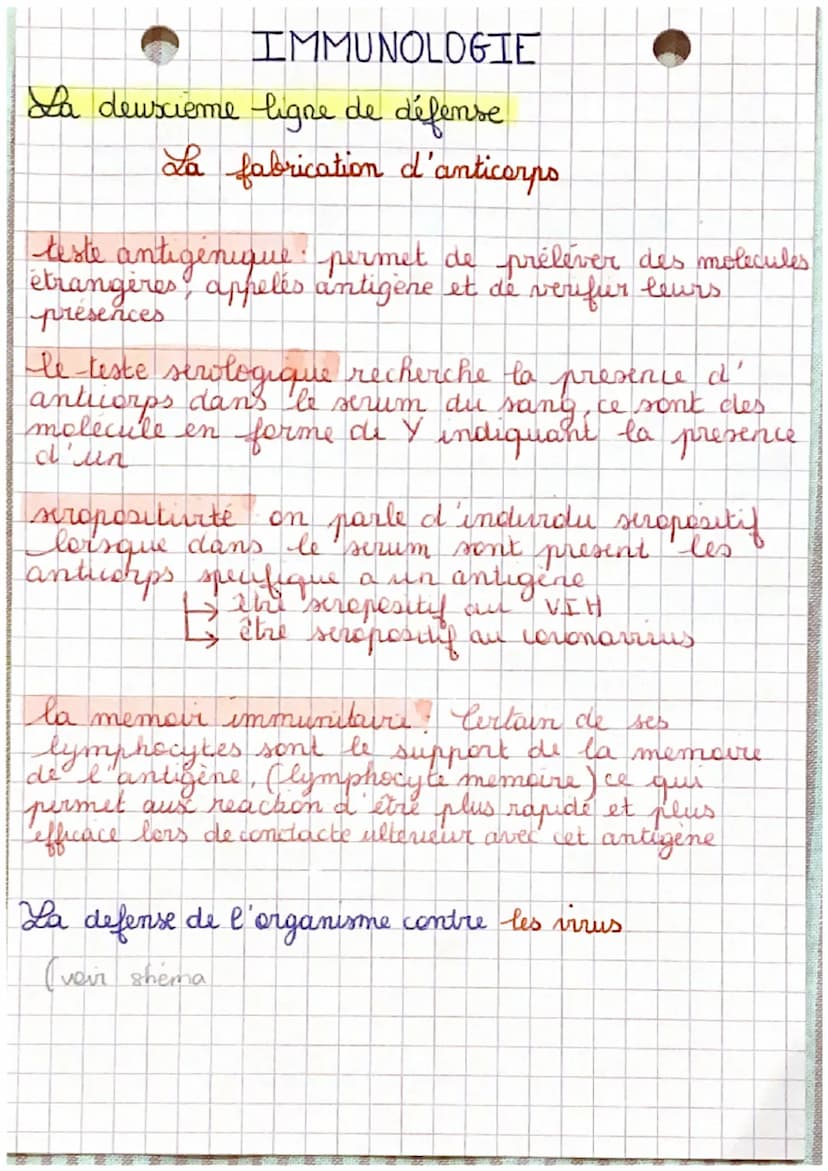 IMMUNOLOGIE
La deuxcième ligne de défense
La fabrication d'anticorps
teste antigénique : permet de préléver des molécules
étrangères, appelés antigène et de verifier leurs
présences
le teste serologique recherche la presence d'
anticorps dans le serum du sang, ce sont des
molécule en forme de Y indiquant la presence
d'un
seropositivité on parle d'individu seropositif
lorsque dans le serum sont present les
anticorps specifique a un antigène
↳ être seropositif au VIH
↳ être seropositif au coronavirus
la memoir immunitaire : Certain de ses
lymphocytes sont le support de la memoire
de l'antigène, (lymphocyte memoire) ce qui
permet aux reaction d'être plus rapide et plus
efficace lors de contacte ulterieur avec cet antigène
La defense de l'organisme contre les virus
(voir shéma